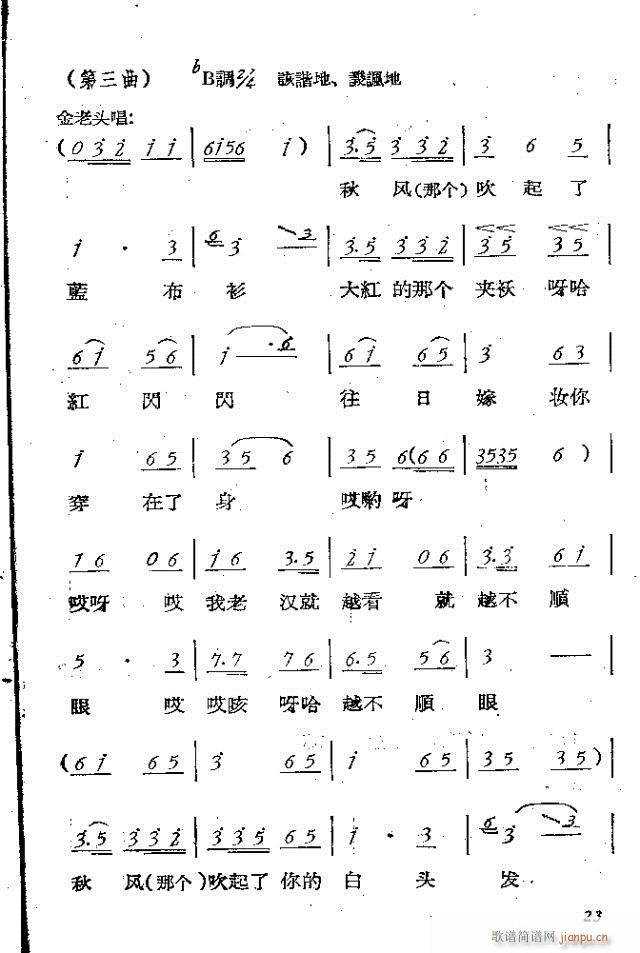 （第三曲） ᵇB調2/4 詼諧地、譏諷地
金老头唱:
(0 3 2 1 1 | 6156 1) | 3.5 3 3 2 | 3 6 5 |
秋 风(那个)吹 起 了
1 · 3 | 6 3 3 | 3.5 3 3 2 | 3 5 3 5 |
藍 布 衫 大紅 的那个 夹袄 呀哈
6 1 5 6 | 1 · 6 | 6 1 6 5 | 3 6 3 |
紅 閃 閃 往 日 嫁 妆你
1 6 5 | 3 5 6 | 3 5 6(6 6 | 3535 6) |
穿 在了 身 哎喲 呀
1 6 0 6 | 1 6 3.5 | 2 1 0 6 | 3.3 6 1 |
哎呀 哎 我老 汉就 越看 就 越不 順
5 · 3 | 7.7 7 6 | 6.5 5 6 | 3 — |
眼 哎 哎咳 呀哈 越不 順 眼
(6 1 6 5 | 3 6 5 | 1 6 5 | 3 5 3 5) |
3.5 3 3 2 | 3 3 5 6 5 | 1 · 3 | 6 3 3 |
秋 风(那个) 吹起了 你的 白 头 发
23
歌谱简谱网 jianpu.cn